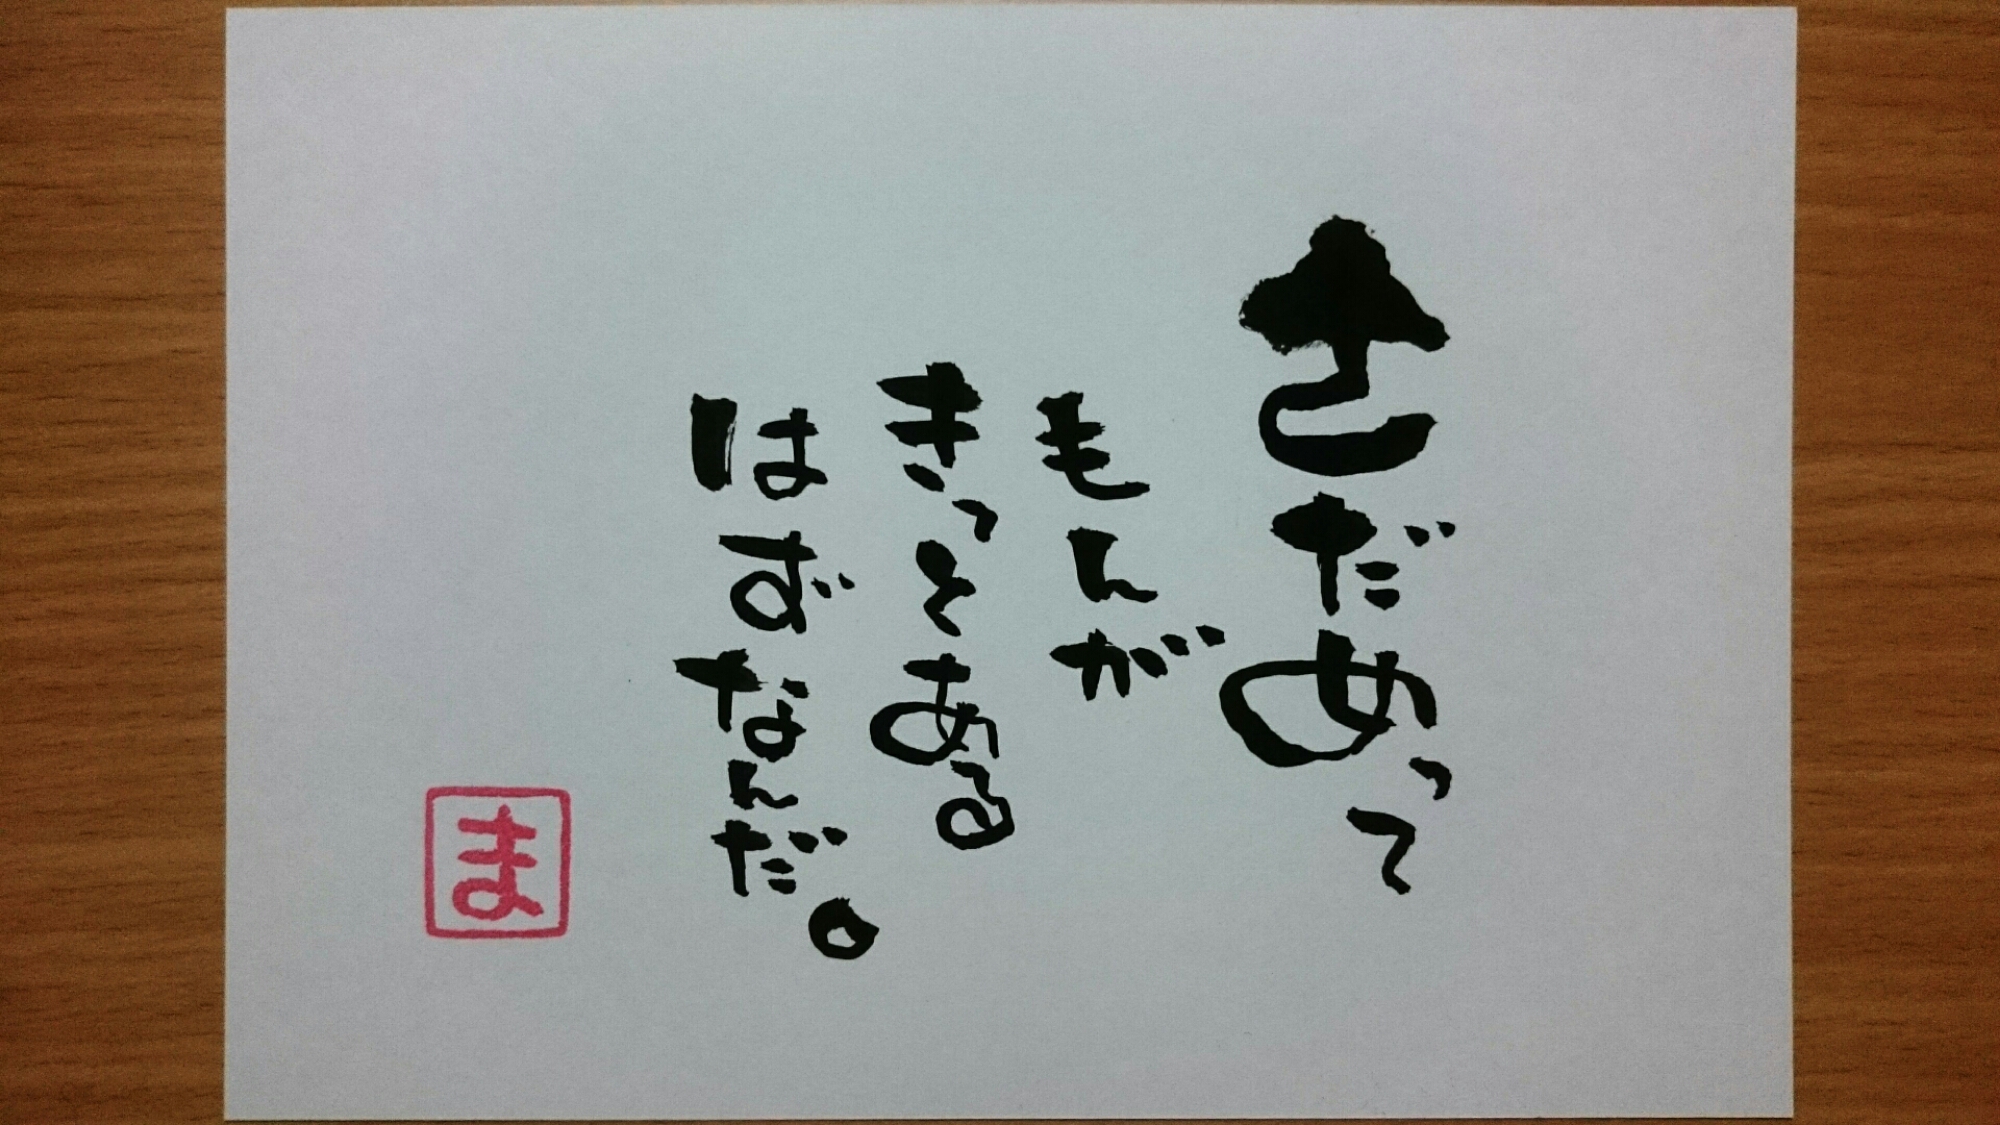 さだめって
もんが
きっとある
はずなんだ。
ま